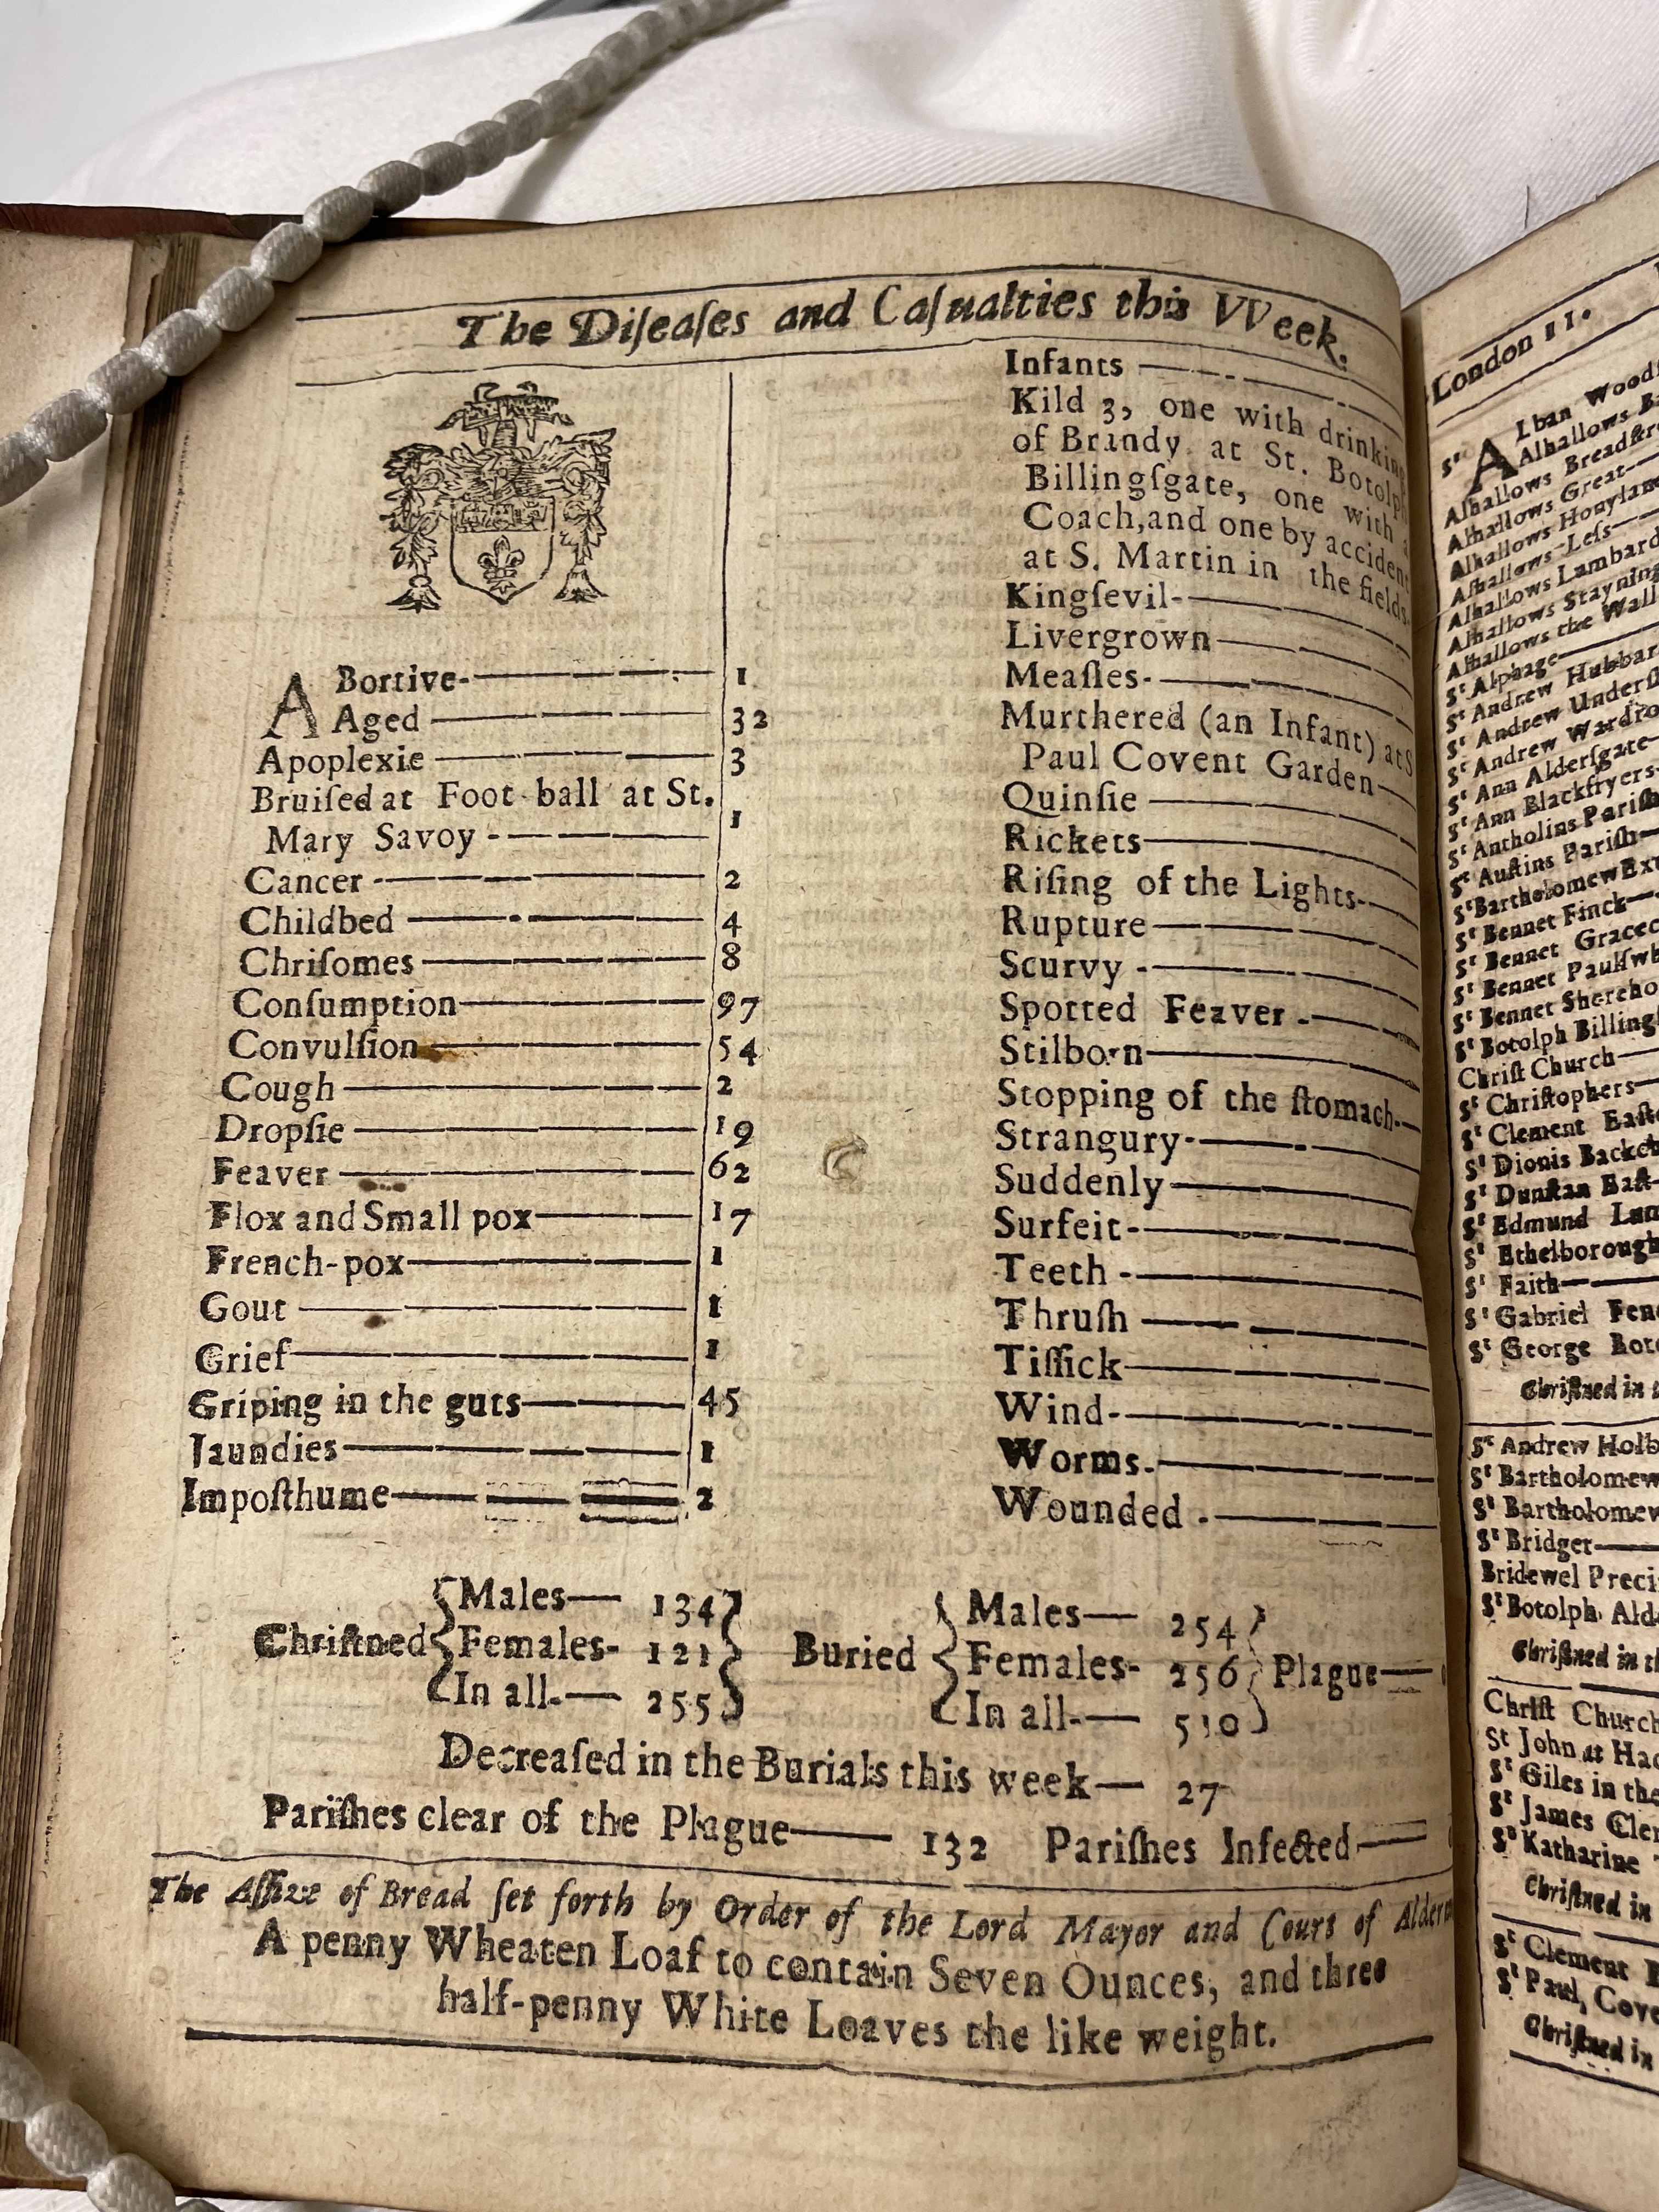 The Diſeaſes and Caſualties this VVeek.
ABortive- 1
Aged 32
Apoplexie 3
Bruiſed at Foot-ball at St.
Mary Savoy - 1
Cancer - 2
Childbed 4
Chriſomes 8
Conſumption 97
Convulſion 54
Cough 2
Dropſie 19
Feaver 62
Flox and Small pox 17
French-pox 1
Gout 1
Grief 1
Griping in the guts 45
Jaundies 1
Impoſthume 2
Infants
Kild 3, one with drinking
of Brandy at St. Botolph
Billingſgate, one with a
Coach, and one by accident
at S. Martin in the fields.
Kingſevil-
Livergrown
Meaſles-
Murthered (an Infant) at S
Paul Covent Garden
Quinſie
Rickets
Riſing of the Lights-
Rupture
Scurvy -
Spotted Feaver -
Stilborn
Stopping of the ſtomach-
Strangury-
Suddenly
Surfeit-
Teeth -
Thruſh
Tiſſick
Wind-
Worms-
Wounded -
Chriſtned Males— 134
Females- 121
In all.— 255
Buried Males— 254
Females- 256
In all-— 510
Plague—
Decreaſed in the Burials this week— 27
Pariſhes clear of the Plague— 132 Pariſhes Infected—
The Aſſize of Bread ſet forth by Order of the Lord Mayor and Court of Alderm
A penny Wheaten Loaf to contain Seven Ounces, and three
half-penny White Loaves the like weight.
London 11.
Sᵗ ALban Wood
Alhallows Ba
Alhallows Breadſtre
Alhallows Great—
Alhallows Honylane
Alhallows Leſs—
Alhallows Lambard
Alhallows Stayning
Alhallows the Wall
Sᵗ Alphage—
Sᵗ Andrew Hubbar
Sᵗ Andrew Underſh
Sᵗ Andrew Wardro
Sᵗ Ann Alderſgate—
Sᵗ Ann Blackfryers—
Sᵗ Antholins Pariſh
Sᵗ Auſtins Pariſh—
Sᵗ Bartholomew Exc
Sᵗ Bennet Finck—
Sᵗ Bennet Gracec
Sᵗ Bennet Paulſwh
Sᵗ Bennet Shereho
Sᵗ Botolph Billing
Chriſt Church—
Sᵗ Chriſtophers—
Sᵗ Clement Eaſt
Sᵗ Dionis Backch
Sᵗ Dunſtan Eaſt-
Sᵗ Edmund Lum
Sᵗ Ethelborough
Sᵗ Faith—
Sᵗ Gabriel Fen
Sᵗ George Boto
Chriſtned in
Sᵗ Andrew Holb
Sᵗ Bartholomew
Sᵗ Bartholomew
Sᵗ Bridget—
Bridewel Preci
Sᵗ Botolph Ald
Chriſtned in th
Chriſt Church
St John at Hac
Sᵗ Giles in the
Sᵗ James Cler
Sᵗ Katharine
Chriſtned in
Sᵗ Clement
Sᵗ Paul, Cove
Chriſtned in